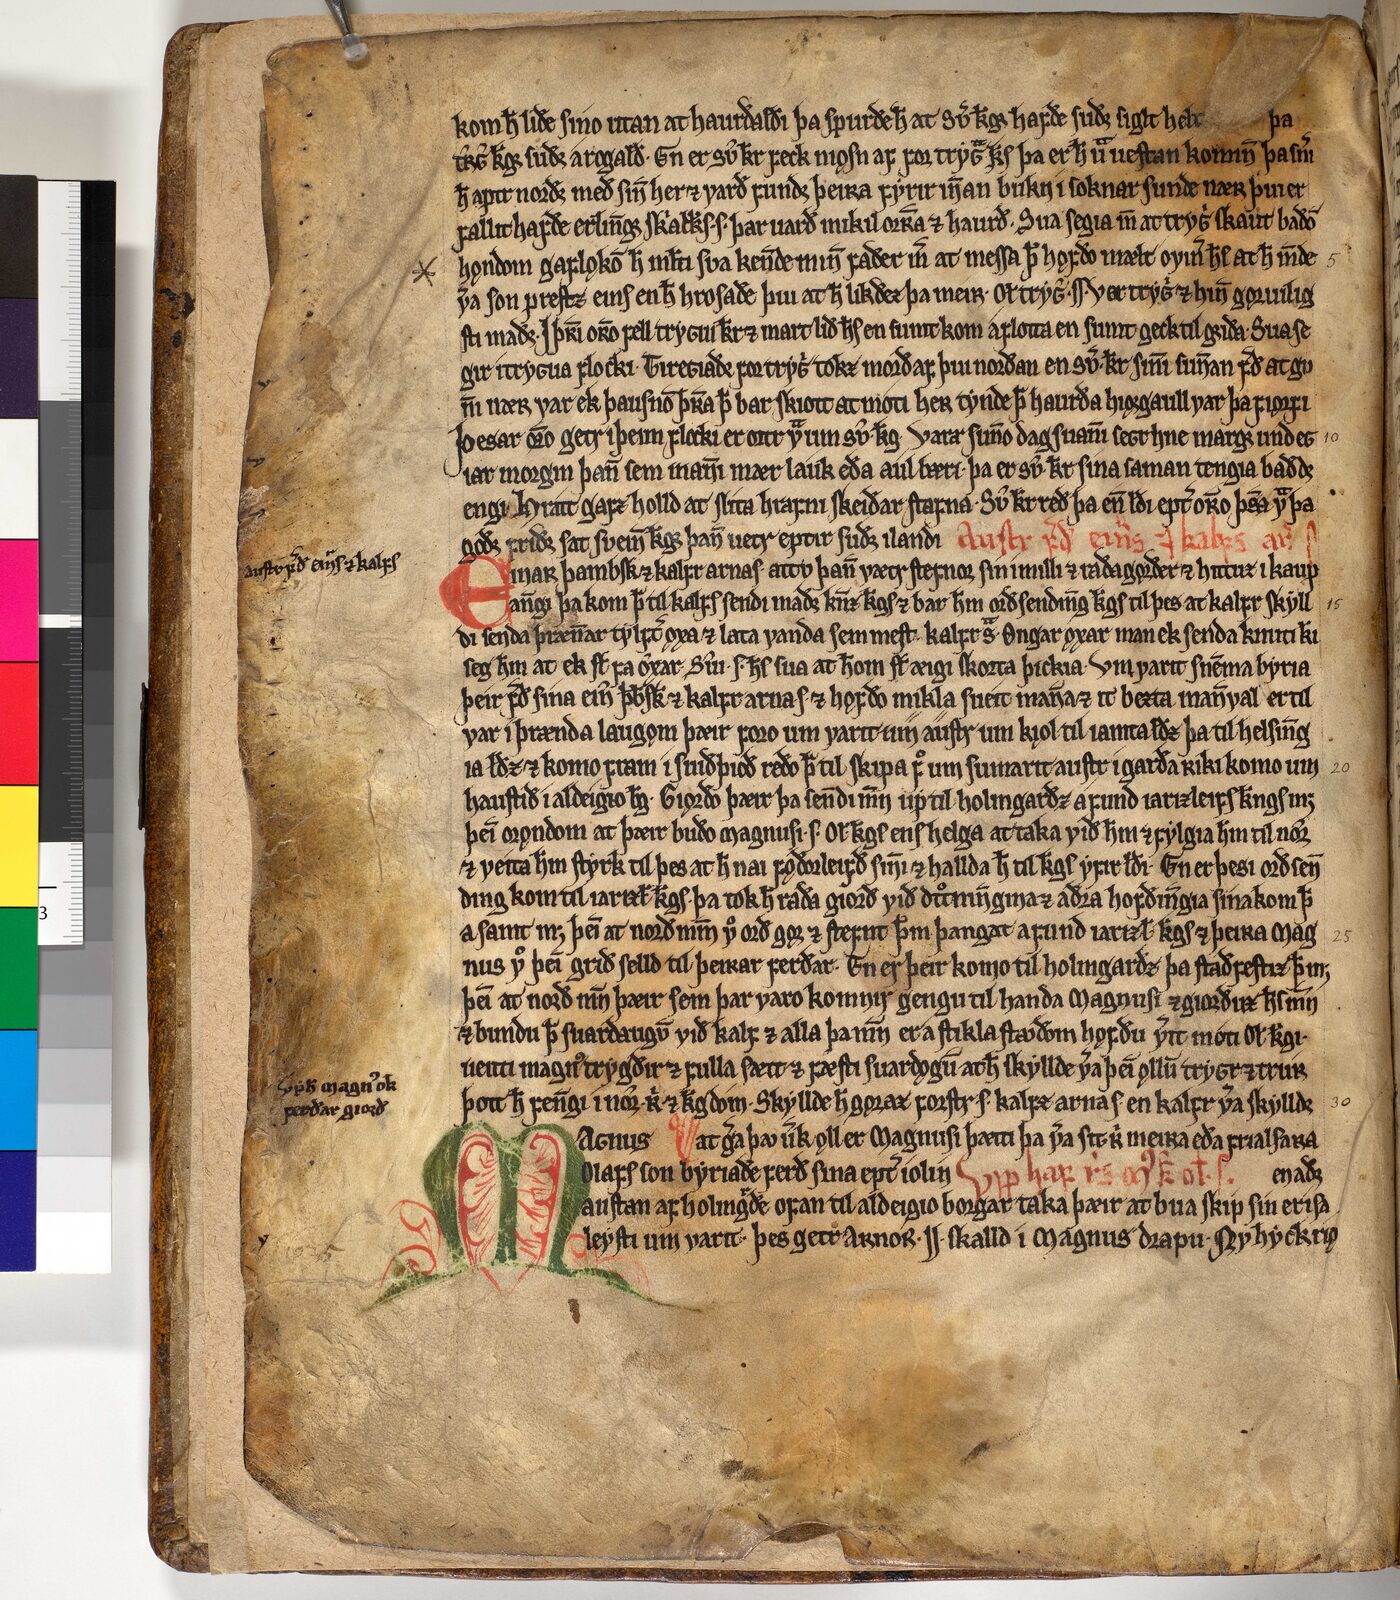 kom h̅ liðe sino utan at haurðalði þa spurðe h̅ at Sv̅ kgꝛ hafðe suðꝛ siglt þa
kgꝛ suðꝛ a rogalð. En er sv̅ kr feck niosn af for tryg̅ þa er h̅ uestan komiɴ þa
h̅ aptr norðꝛ með siɴ her ⁊ varð fundꝛ þeira fyrir iɴan bukn i soknar sunde næʀ þui er
fallit hafðe erlingꝛ skials s. þar uarð mikil orꝛa ⁊ haurð. Sva segia m̅ at tryg̅ skaut baðo̅
hǫndom gaflǫko̅ h̅ mlti sva kende miɴ faðer m̅ at messa þ̅ hǫfðo mælt ovin̅ h̅s at h̅ mðe
v̅a son prestz eins en h̅ hrosaðe þui at h̅ likðez þa meiʀ. Ol̅ tryg̅. s. ver tryg̅ ⁊ hiɴ gǫruilig
sti maðꝛ. I þri oꝛo fell trygui kr ⁊ mart lið h̅s en sumt kom a flotta en sumt geck til griða. Sva se
gir i trygua flocki. Tiregiaðe for tryg̅ tokz morð af þui norðan en sv̅ kr siɴi suɴan f̅ð at gu
m̅ næʀ var ek þausno̅ þr̅a þ̅ bar skiott at moti heʀ tynde þ̅ haurða hiǫrgaull var þa fiǫrfi
þesar oꝛo getr i þeim flocki er ortr v̅ um sv̅ kg. Vara suɴo dag suaɴi segr hne margr und eg
iar morgin þaɴ sem maɴi mær lauk eða aul bæri. þa er sv̅ kr sina saman tengia bað ðe
engi. hrátt gafz holld at slita hrafni skeiðar stafna. Sv̅ kr reð þa eɴ lði ept̅ oꝛo þes̅a v̅ þa
goðꝛ friðꝛ sat svein kgꝛ þaɴ uetr eptir suðꝛ i landi Austr f̅ð ein̅s ⁊ kalfs ar̅ s
Einaʀ þambsk̅ ⁊ kalfr arnas. atto þaɴ vætr stefnor sin i milli ⁊ raðagǫrðer ⁊ hittuz i kaup
angi þa kom þ̅ til kalfs sendi maðꝛ kn̅z kgs ⁊ bar h̅m orðsending kgs til þes at kalfr skyll
di senda þræɴar tylft̅ ǫxa ⁊ lata vanda sem mest. kalfr s̅. Ongar ǫxar man ek senda knuti ki
seg h̅m at ek sk̅ fa ǫxar. Svi. s. h̅s sva at h̅om sk̅ æigi skorta þickia. Vm varit sne̅ma byria
þeir f̅ð sina ein̅ þb̅sk ⁊ kalfr arnas. ⁊ hǫfðo mikla sveit maɴa ⁊ it bezta maɴval er til
var i þrænda laugom þæir foro um varit austr um kiol til iamtalðz þa til helsing
ialðz ⁊ komo fram i suiðþioð reðo þ̅ til skipa f̅o um sumarit austr i garða riki komo um
haustið i aldeigio bg̅. Giǫrðo þæir þa sendi m̅n up til holmgarðz a fund iarizleifs kngs mꝫ
þei̅ ǫrǫndom at þæir buðo magnusi. s. Ol̅ kgs ens helga at taka við h̅m ⁊ fylgia h̅m til nor̅
⁊ veita h̅m styrk til þes at h̅ nai fǫðorleifð siɴi ⁊ hallda h̅ til kgs yfir lði. En er þesi orðsen̅
ding kom til iarizl̅ kgs. þa tok h̅ raða giǫrð við ðrot̅ningina ⁊ aðra hofðingia sina kom þ̅
a samt mꝫ þei̅ at norðmm̅ v̅o orð gǫr ⁊ stefnt þ̅m þangat a fund iarizl̅. kgs ⁊ þeira Mag
nus v̅o þei̅ grið selld til þeirar ferðar. En er þeir komo til holmgarðz þa staðfestiz þ̅ mꝫ
þei̅ at norð mn̅ þæir sem þar varo komnir gengu til handa Magnusi ⁊ giorðuz h̅s mn̅
⁊ bundu þ̅ suardaugu̅ við kalf ⁊ alla þa mn̅ er a stikla stǫðom hǫfðu v̅it moti Ol̅ kgi.
ueitti magn᷒ trygðir ⁊ fulla sætt ⁊ fæsti suardǫgu̅ at h̅ skyllde v̅a þei̅ ǫllu̅ tryɢr ⁊ truʀ
þott h̅ fengi i nor̅ k̅ ⁊ kgdom. Skyllde h̅ gǫraz forstr̅ s. kalfz arna s. en kalfr v̅a skyllde
MAGNUS Vat g̅a þau v̅k ǫll er Magnusi þætti þa v̅a sitt r̅ meira eða frialsara
Olafs son byriaðe ferð sina ept̅ iolin Vpp haf
austan af holmg̅ðe ofan til aldeigio borgar taka þæir at bua skip sin er isa
leysti um varit. þes getr Arnoʀ. JJ. skalld i Magnus drapu. Ny hyck rio
austr f̅ð ein̅s ⁊ kalfs
Vph̅ magn᷒ ok̅
ferðar giorð
5
10
15
20
25
30
3